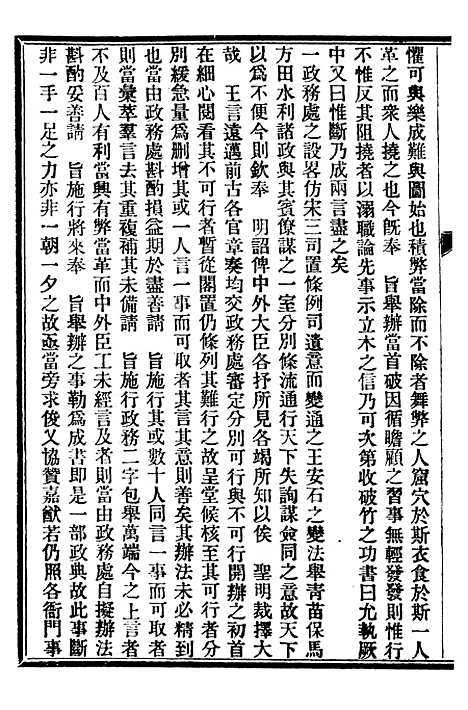 懼可與樂成難與圖始也積弊當除而不除者舞弊之人窟穴於斯衣食於斯一人
革之而衆人撓之也今旣奉　旨舉辦當首破因循瞻顧之習事無輕發發則惟行
不惟反其阻撓者以溺職論先事示立木之信乃可次第收破竹之功書曰允執厥
中又曰惟斷乃成兩言盡之矣
一政務處之設畧仿宋三司置條例司遺意而變通之王安石之變法舉靑苗保馬
方田水利諸政與其賓僚謀之一室分別條流通行天下失詢謀僉同之意故天下
以爲不便今則欽奉　明詔俾中外大臣各抒所見各竭所知以俟　聖明裁擇大
哉　王言遠邁前古各官章奏均交政務處審定分別可行與不可行開辦之初首
在細心閱看其不可行者暫從閣置仍條列其難行之故呈堂候核至其可行者分
別緩急量爲删增其或一人言一事而可取者其言其意則善矣其辦法未必精到
也當由政務處斟酌損益期於盡善請　旨施行其或數十人同言一事而可取者
則當彙萃羣言去其重複補其未備請　旨施行政務二字包舉萬端今之上言者
不及百人有利當興有弊當革而中外臣工未經言及者則當由政務處自擬辦法
斟酌妥善請　旨施行將來奉　旨舉辦之事勒爲成書即是一部政典故此事斷
非一手一足之力亦非一朝一夕之故亟當旁求俊乂協贊嘉猷若仍照各衙門事